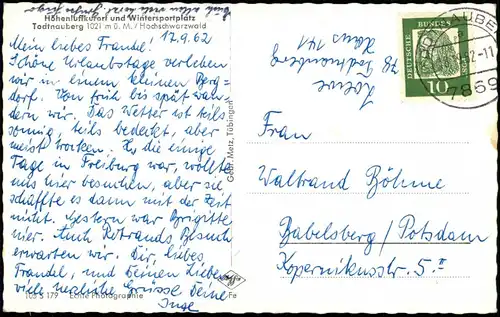 Höhenluftkurort und Wintersportplatz
Todtnauberg 1021 m ü. M. / Hochschwarzwald
17.9.62
Mein liebes Fraudel!
Schöne Urlaubstage verleben
wir in einem kleinen Berg-
dorf. Von früh bis spät wan-
dern wir. Das Wetter ist teils
sonnig, teils bedeckt, aber
meist trocken. H., die einige
Tage in Freiburg war, wollte
uns hier besuchen, aber sie
schaffte es dann mit der Zeit
nicht. Gestern war Brigitte
hier. Auch Rotrauds Besuch
erwarten wir. Dir, liebes
Fraudel, und Deinen Lieben
viele herzliche Grüsse Deine
Inge
103 S 179 Echte Photographie
Fe
Gebr. Metz, Tübingen
Agfa
78 Todtnauberg
Haus 141
DEUTSCHE BUNDESPOST
10
TODTNAUBERG
7859
Frau
Waltraud Böhme
Babelsberg / Potsdam
Kopernikusstr. 5 II